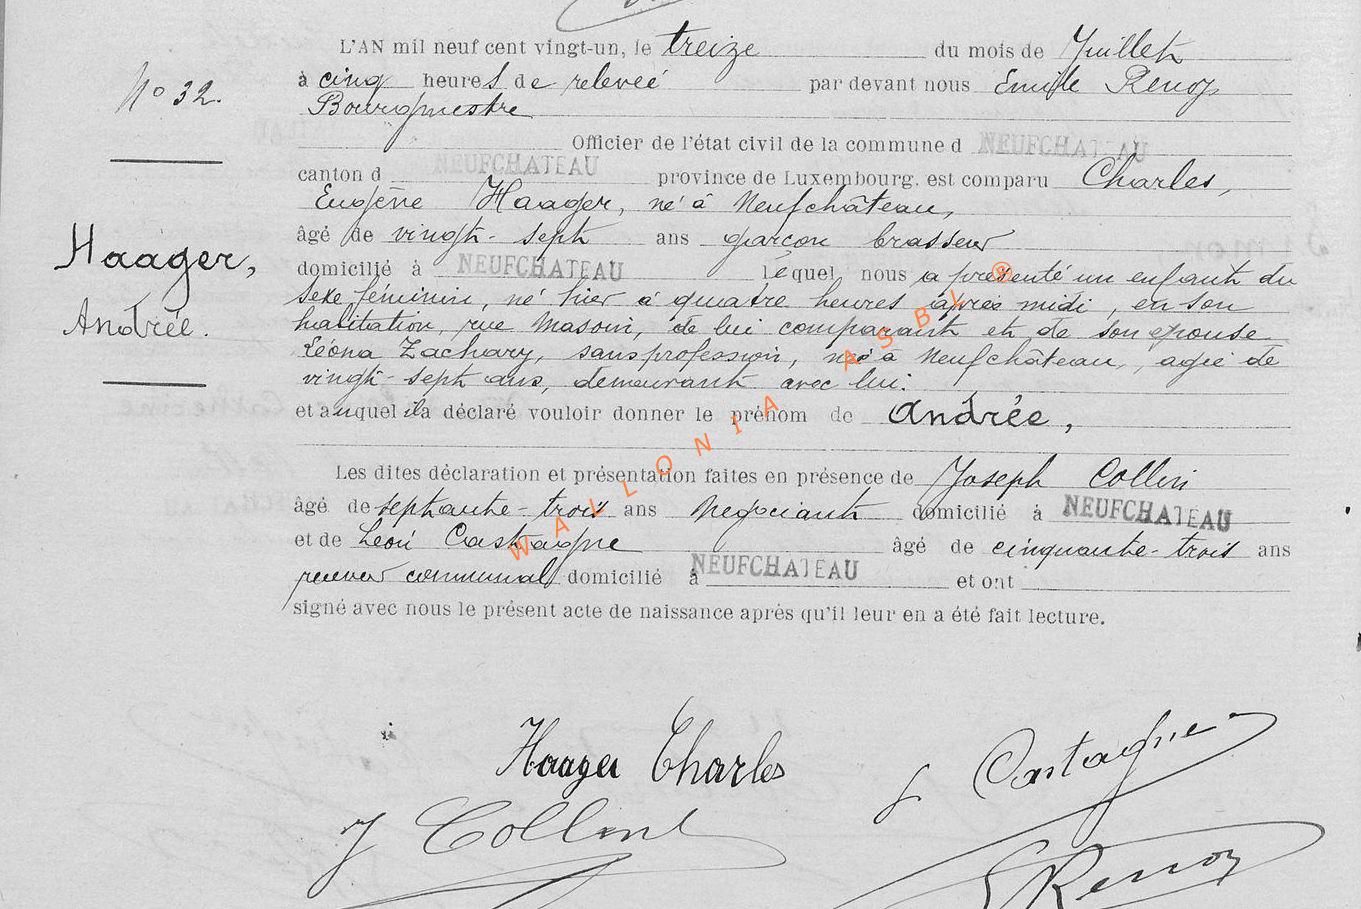 L'AN mil neuf cent vingt-un, le treize du mois de Juillet
N° 32.
à cinq heures de relevée par devant nous Emile Renoy
Bourgmestre
Officier de l'état civil de la commune d NEUFCHATEAU
canton d NEUFCHATEAU province de Luxembourg, est comparu Charles,
Eugène Haager, né à Neufchâteau,
âgé de vingt-sept ans garçon brasseur
Haager,
Andrée.
domicilié à NEUFCHATEAU Lequel, nous a présenté un enfant du
sexe féminin, né hier à quatre heures après midi, en son
habitation, rue Masoin, de lui comparant et de son épouse
Léona Zachary, sans profession, née à Neufchâteau, agée de
vingt-sept ans, demeurant avec lui.
et auquel il a déclaré vouloir donner le prénom de Andrée,
Les dites déclaration et présentation faites en présence de Joseph Collin
âgé de septante-trois ans Négociant domicilié à NEUFCHATEAU
et de Léon Castagne âgé de cinquante-trois ans
receveur communal domicilié à NEUFCHATEAU et ont
signé avec nous le présent acte de naissance après qu'il leur en a été fait lecture.
WALLONIA ASBL ®
Haager Charles
L Castagne
J Collin
E Renoy